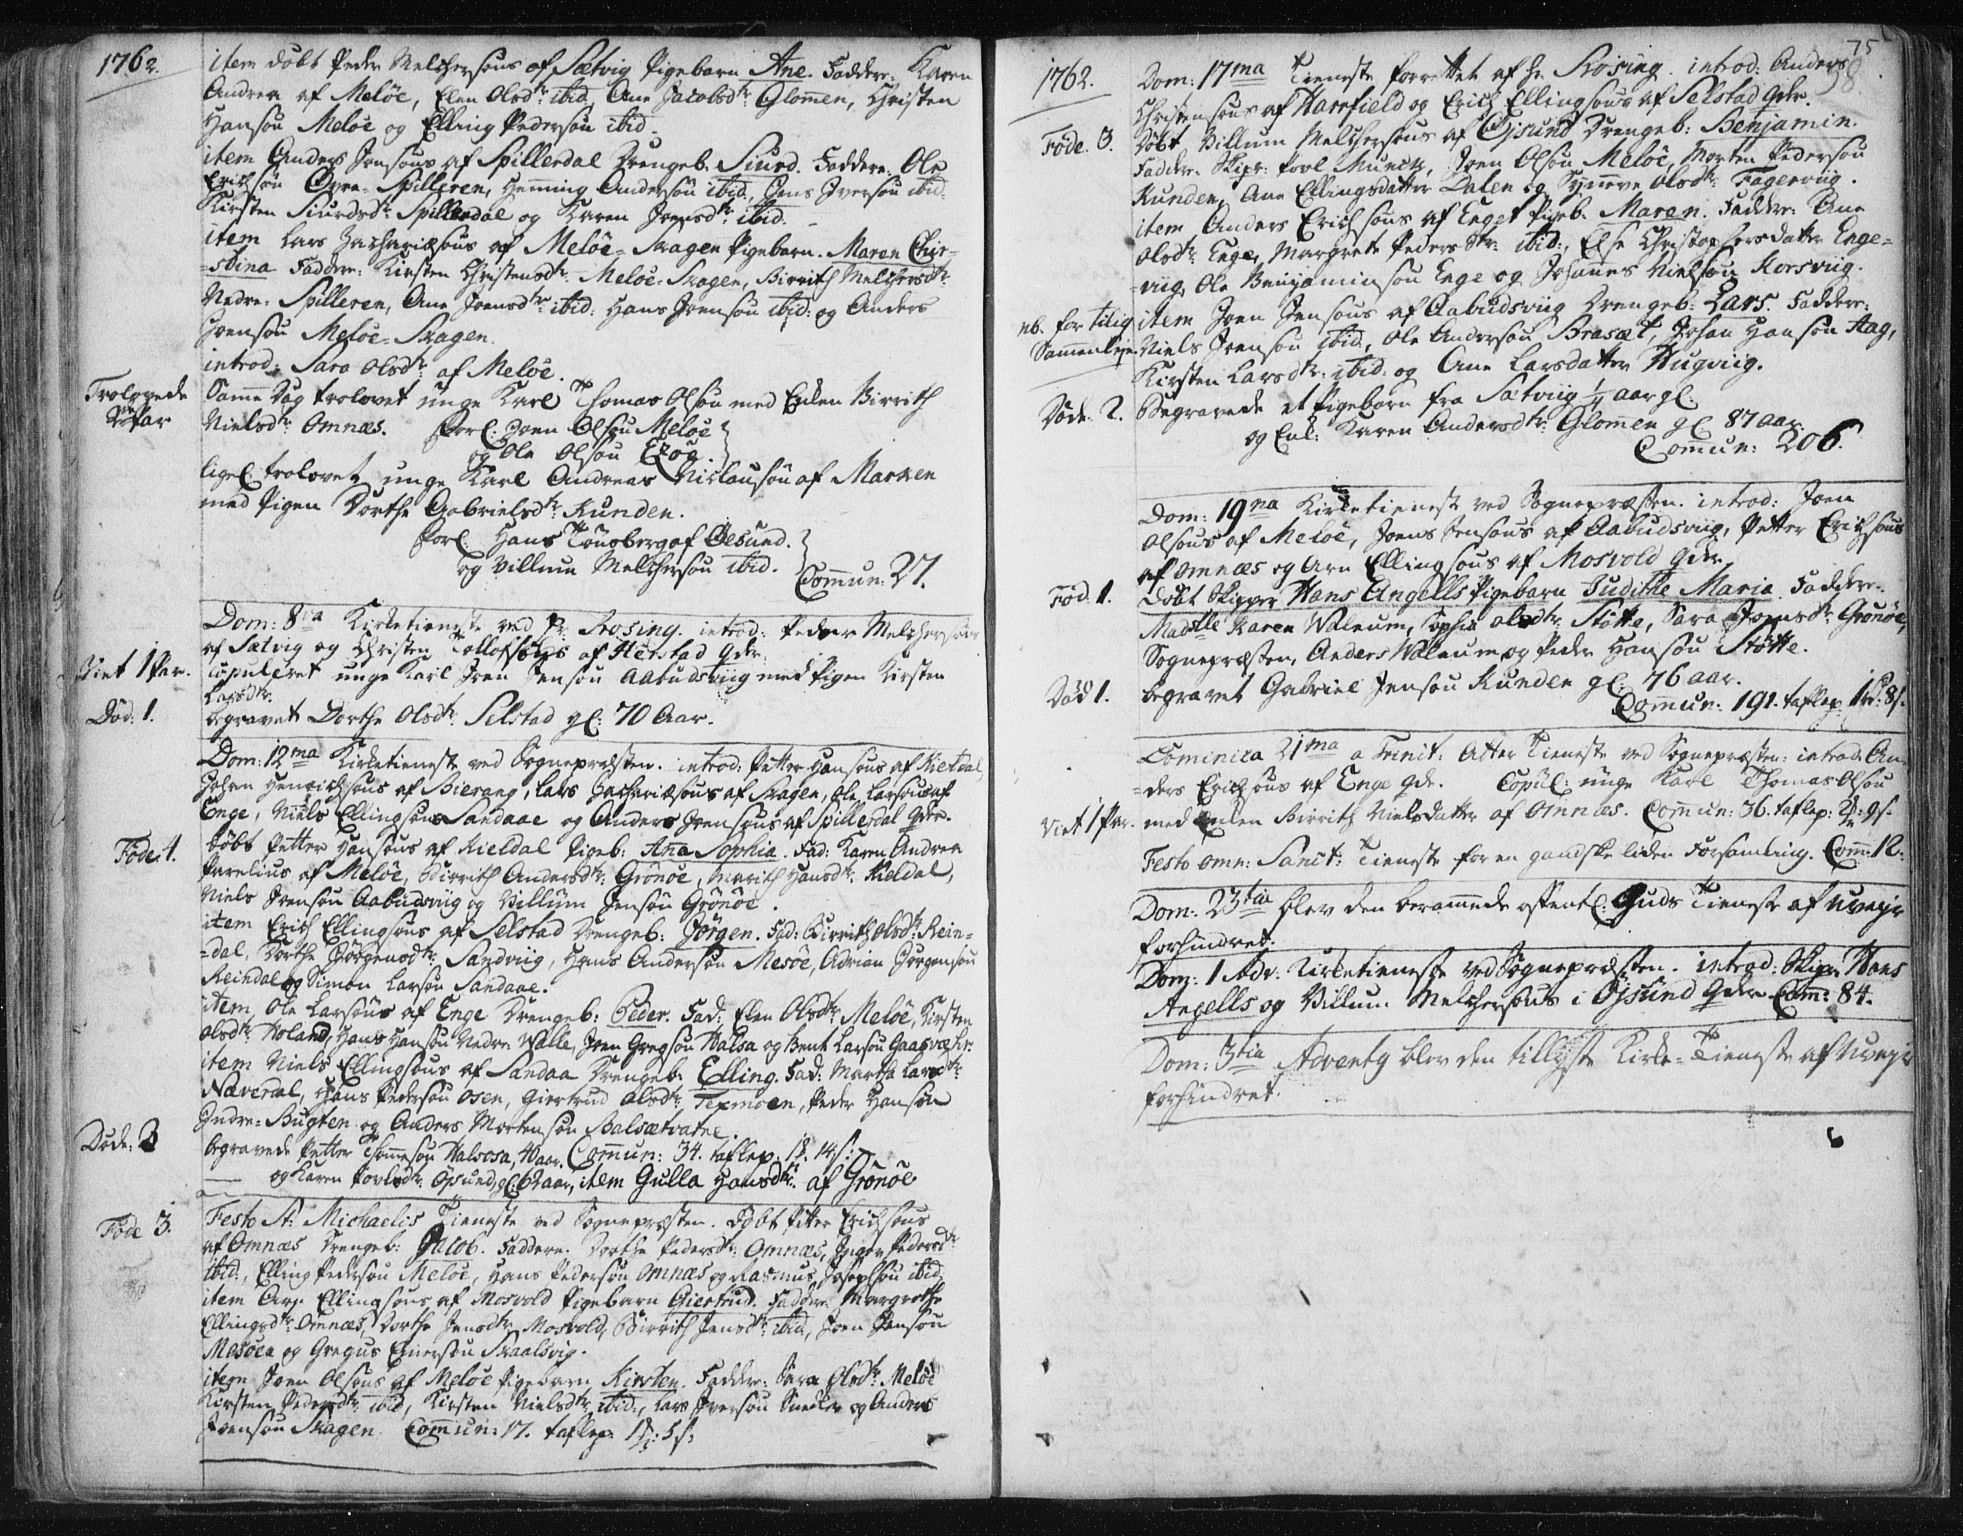 1762.
item döbt Peder Melchersöns af Sætvig Pigebarn Ane. Faddere: Karen
Andrea af Melöe, Elen Olsdr: ibid, Ane Jacobsdr: Glomen, Christen
Hansön Melöe og Elling Pedersön ibid.
item Anders Jensöns af Spillerdal Drengeb. Siurd. Faddere: Ole
Erichsön Övre-Spilleren, Henning Andersön ibid., Hans Iversön ibid.
Kirsten Siurdsdr: Spillerdal og Karen Joensdr: ibid.
item Lars Zachariæsöns af Melöe-Skagen Pigebarn. Maren Chir-
-stina Faddere: Kirsten Christensdr: Melöe-Skagen, Birrith Melchersdr:
Nedre-Spilleren, Ane Joensdr: ibid: Hans Jensön ibid: og Anders
Jensön Melöe-Skagen.
introd: Sara Olsdr: af Melöe.
Trolovede
Par
Samme Dag trolovet unge Karl Thomas Olsön med Enken Birrith
Nielsdr: Omnæs. Forl: Joen Olsön Melöe
og Ole Olsön
ligel: trolovet unge Karl Andreas Niclausön af Marken
med Pigen Dorthe Gabrielsdr: Kunden.
Forl: Hans Tönsberg af Öesund.
og Villum Melchersön ibid. Commun: 27.
Dom: 8va Kirketieneste ved Hr. Rosing. introd: Peder Melchersöns
af Sætvig og Christen Tollofsöns af Herstad Qdr.
Viet 1 Par.
copuleret unge Karl Joen Jensön Aabudsviig med Pigen Kirsten
Larsdr.
Död: 1.
begravet Dorthe Olsdr: Selstad gl: 70 Aar.
Dom: 12ma Kirketieneste ved Sognepræsten. introd: Petter Hansöns af Kieldal,
Johan Henrichsöns af Bierang, Lars Zachariæsöns af Skagen, Ole Larsöns af
Enge, Niels Ellingsöns Sandaae og Anders Jensöns af Spillerdal Qdr.
Föde. 4.
döbt Petter Hansöns af Kieldal Pigeb: Ana Sophia. Fad: Karen Andrea
Parelius af Melöe, Birrith Andersdr: Grönöe, Marith Hansdr: Kieldal,
Niels Jensön Aabudsviig og Villum Jensön Grönöe.
item Erich Ellingsöns af Selstad Drengeb: Jörgen. Fad: Birrith Olsdr: Rein-
-dal, Dorthe Jörgensdr: Sandviig, Hans Andersön Mesöe, Adrian Jörgensön
Reindal og Simon Larsön Sandaae.
item Ole Larsöns af Enge Drengeb: Peder. Fad: Elen Olsdr: Melöe, Kirsten
Olsdr: Holand, Hans Hansön Nedre-Valle, Joen Gregsön Halsa og Bent Larsön
item Niels Ellingsöns af Sandaa Drengeb. Elling. Fad: Martha Larsdr:
Næverdal, Hans Pedersön Osen, Giertrud Olsdr: Texmoen, Peder Hansön
Indre-Bugten og Anders Mortensön Balsætvatne.
Döde: 3
begravede Petter Halsosa, Commun: 34. taflep:
og Karen Povlsdr: Öysund, gl: 62 aar, item Gulla Hansdr: af Grönöe
Föde 3.
Festo St: Michaelis Tieneste ved Sognepræsten. Döbt Petter Erichsöns
af Omnæs Drengeb: Jacob. Faddere. Dorthe Pedersdr: Omnæs, Inger Pedersdr:
ibid., Elling Pedersön Melöe, Hans Pedersön Omnæs og Rasmus Josephsön ibid.
item Arn Ellingsöns af Mosvold Pigebarn Giertrud. Faddere Margrethe
Ellingsdr: Omnæs, Dorthe Jensdr: Mosvold, Birrith Jensdr: ibid., Joen Jensön
Mesöen og Gregus Einersön Skaalsvig.
item Joen Olsöns af Melöe Pigebarn Kirsten. Faddere: Sara Olsdr: Melöe
Kirsten Pedersdr: ibid, Kirsten Nielsdr: ibid:, Lars Iversön og Anders
Jensön Skagen. Commun: 17. taflep:
75
98
1762.
Dom: 17ma Tieneste forrettet af Hr. Rosing. introd: Anders
Christensöns af Harrfield og Erich Ellingsöns af Selstad Qdr.
Föde. 3.
Döbt Villum Melchersöns af Öjsund Drengeb: Benjamin.
Faddere. Skipr: Povl Munck, Joen Olsön Melöe, Morten Pedersön
Kunden, Ane Ellingsdatter Dalen og Synneve Olsdr: Fagerviig.
item Anders Erichsöns af Enget Pigeb. Maren. Faddere: Ane
Olsdr: Enge, Margrete Pedersdr: ibid:, Else Christophersdatter Enge-
-viig, Ole Benjaminsön Enge og Johannes Nielsön Korsviig.
nb. for tilig
Sammenleje.
item Joen Jensöns af Aabudsviig Drengeb: Lars. Faddere:
Niels Jensön ibid:, Ole Andersön Brasæt, Johan Hansön Aag,
Kirsten Larsdr: ibid: og Ane Larsdatter Hugviig.
Döde. 2.
Begravede et Pigebarn fra Sætviig 1/4 aar gl.
og Enk: Karen Andersdr: Glomen gl 87 aar.
Commun: 206.
Dom: 19na Kirketieneste ved Sognepræsten. introd: Joen
Olsöns af Melöe, Joens Jensöns af Aabudsviig, Petter Erichsöns
af Omnæs og Arn Ellingsöns af Mosvold Qdr.
Föd. 1.
Döbt Skipper Hans Angells Pigebarn Judithe Maria. Faddere.
Madslle Karen Waleum, Sophia Olsdr: Stötte, Sara Joensdr: Grönöe,
Sognepræsten, Anders Waleum og Peder Hansön Stötte.
Död 1.
begravet Gabriel Jensön Kunden gl: 76 aar.
Commun: 191. taflep: 1rd: 8s.
Dominica 21ma a Trinit: Atter Tieneste ved Sognepræsten: introd: An-
-ders Erichsöns af Enge Qdr. Copul: unge Karl Thomas Olsön
Viet 1 Par.
med Enken Birrith Nielsdatter af Omnæs. Commun: 36. taflep:
Festo omn: Sanct: Tieneste for en gandske liden Forsamling. Com: 12.
Dom: 23tia blev den berammede offentl: Guds Tieneste af Uveyr
forhindret.
Dom: 1 Adv: Kirketieneste ved Sognepræsten. introd: Skipr: Hans
Angells og Villum Melchersöns i Öjsund Qdr. Com: 84.
Dom: 3tia Adventq blev den tillyste Kirke-Tieneste af Uveyr
forhindret.